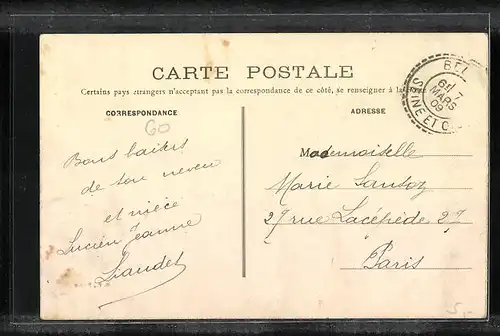 CARTE POSTALE
Certains pays étrangers n'acceptant pas la correspondance de ce côté, se renseigner à la
CORRESPONDANCE
60
Bons baisers
de ton neveu
et nièce
Lucien Jeanne
ADRESSE
Mademoiselle
Marie
27 rue Lacépède 27
Paris
BEL
MARS
09
SEINE ET O
5,-